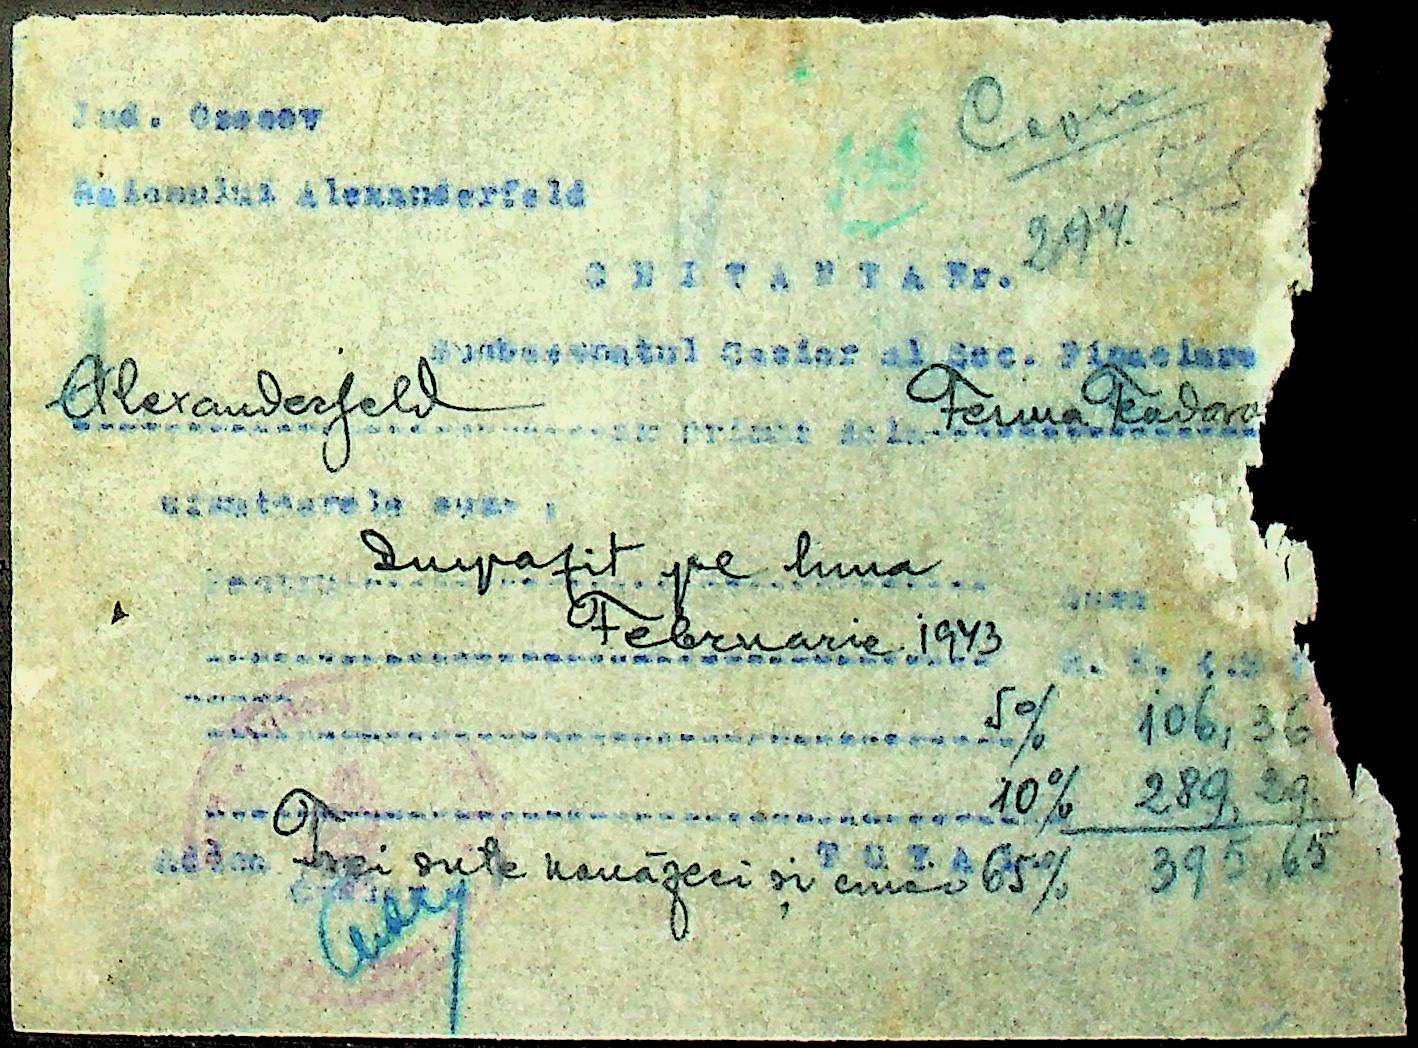 Jud. Oceacov
Copie
Raionului Alexanderfeld
CHITANTA Nr. 294.
Subsemnatul Casier al Sec. Financiare
Alexanderfeld am primit dela Ferma Teodoro
urmatoarele sume :
Pentru Impozit pe luna
Suma
Februarie 1943
5% 106,36
10% 289,29.
Adeca Trei sute nouăzeci și cinci 65% TOTAL 395,65